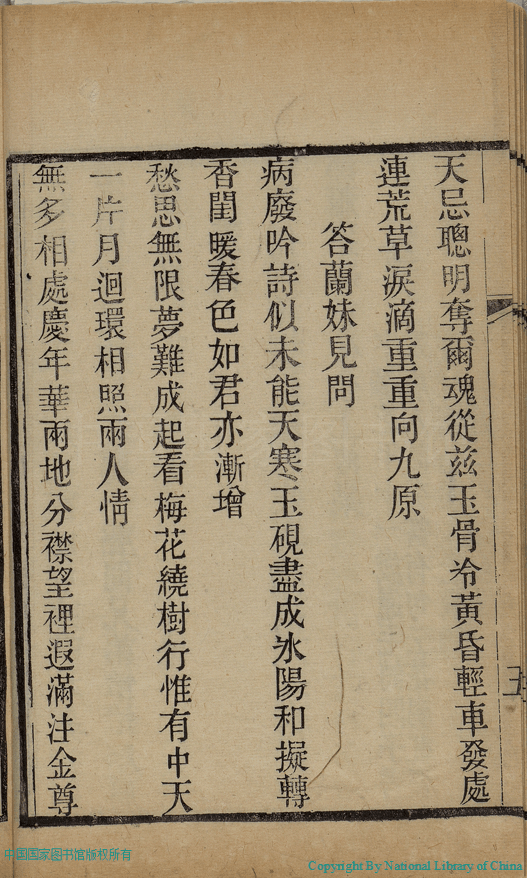 天忌聰明奪爾魂從玆玉骨冷黃昏輕車發處
連荒草淚滴重重向九原
答蘭妹見問
病廢吟詩似未能天寒玉硯盡成氷陽和擬轉
香閨暖春色如君亦漸增
愁思無限夢難成起看梅花繞樹行惟有中天
一片月迴環相照兩人情
無多相處慶年華兩地分襟望裡遐滿注金尊
五
中国国家图书馆版权所有
Copyright By National Library of China